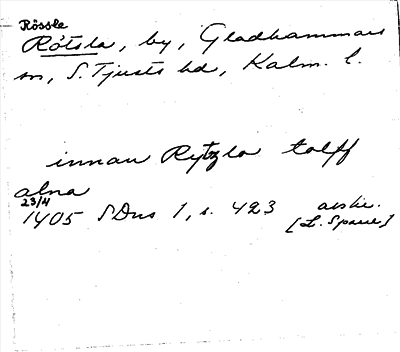 Rössle
Rötsla, by, Gladhammars
sn, S. Tjusts hd, Kalm. l.
innan Rytzla tolff
alna
23/4
1405 SDns 1, s. 423 avskr.
[L. Sparre]